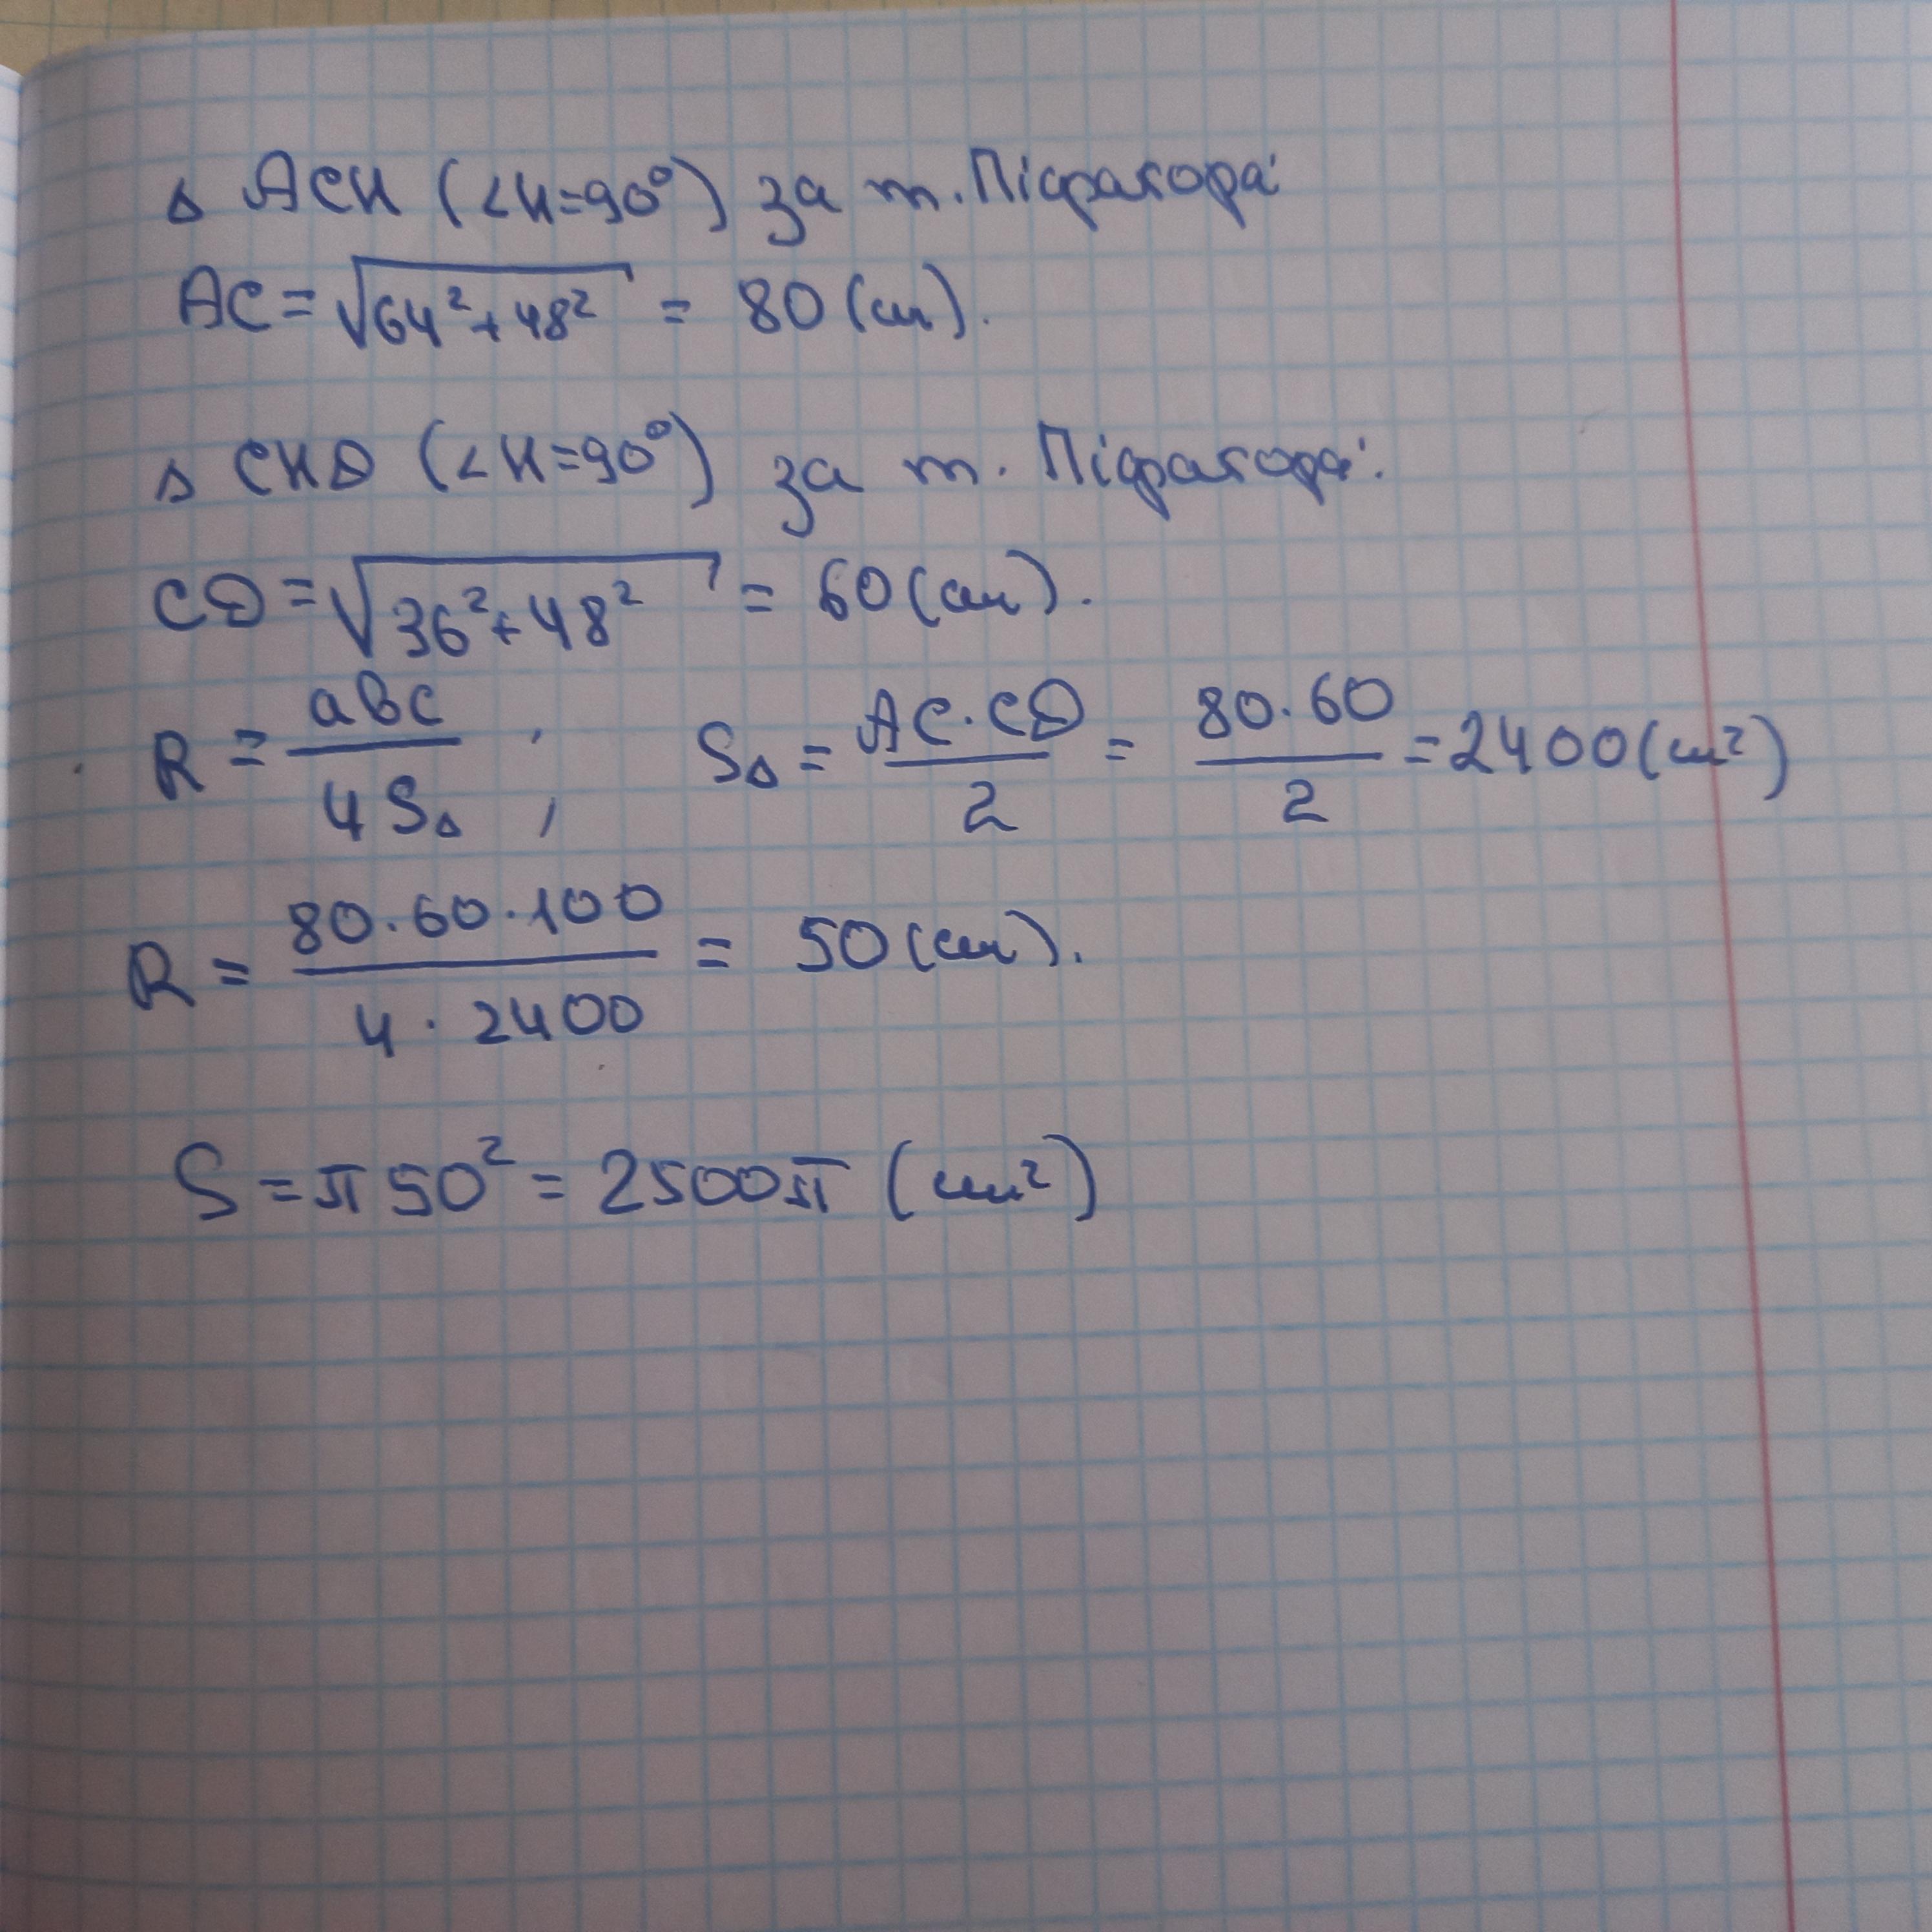 Δ ACH (∠H=90°) за т. Піфагора:
AC = √64²+48² = 80 (см).
Δ CHD (∠H=90°) за т. Піфагора:
CD = √36²+48² = 60 (см).
R = abc / 4SΔ ; SΔ = AC·CD / 2 = 80·60 / 2 = 2400 (см²)
R = 80·60·100 / 4·2400 = 50 (см).
S = π 50² = 2500π (см²)